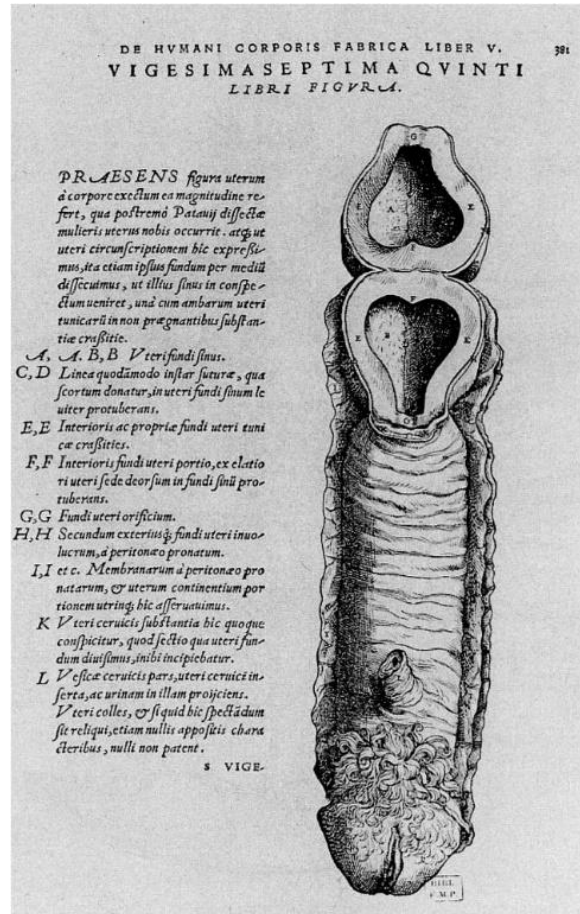 DE HVMANI CORPORIS FABRICA LIBER V. 381
VIGESIMASEPTIMA QVINTI
LIBRI FIGVRA.
PRAESENS figura uterum
à corpore exectum ea magnitudine re-
fert, qua postremò Patauij dissectæ
mulieris uterus nobis occurrit. atq; ut
uteri circunscriptionem hic expressi-
mus, ita etiam ipsius fundum per mediū
dissecuimus, ut illius sinus in conspe-
ctum ueniret, unà cum ambarum uteri
tunicarū in non prægnantibus substan-
tiæ crassitie.
A, A. B, B Vteri fundi sinus.
C, D Linea quodāmodo instar suturæ, qua
scortum donatur, in uteri fundi sinum le
uiter protuberans.
E, E Interioris ac propriæ fundi uteri tuni
cæ crassities.
F, F Interioris fundi uteri portio, ex elatio
ri uteri sede deorsum in fundi sinū pro-
tuberans.
G, G Fundi uteri orificium.
H, H Secundum exterius'q; fundi uteri inuo-
lucrum, à peritonæo pronatum.
I, I et c. Membranarum à peritonæo pro
natarum, & uterum continentium por
tionem utrinq; hic asseruauimus.
K Vteri ceruicis substantia hic quoque
conspicitur, quod sectio qua uteri fun-
dum diuisimus, inibi incipiebatur.
L Vesicæ ceruicis pars, uteri ceruici in-
serta, ac urinam in illam proijciens.
Vteri colles, & si quid hic spectādum
sit reliqui, etiam nullis appositis chara
cteribus, nulli non patent.
s VIGE-
G
E
A
E
F
E
B
G
BIBL
F.M.P.